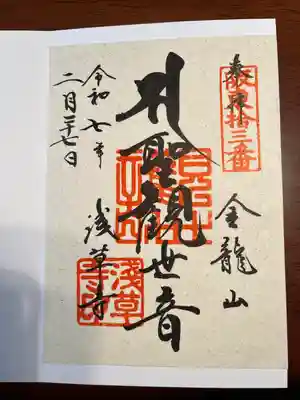 奉拝
坂東拾三番
金龍山
聖観世音
浅草寺
令和七年
二月二十七日